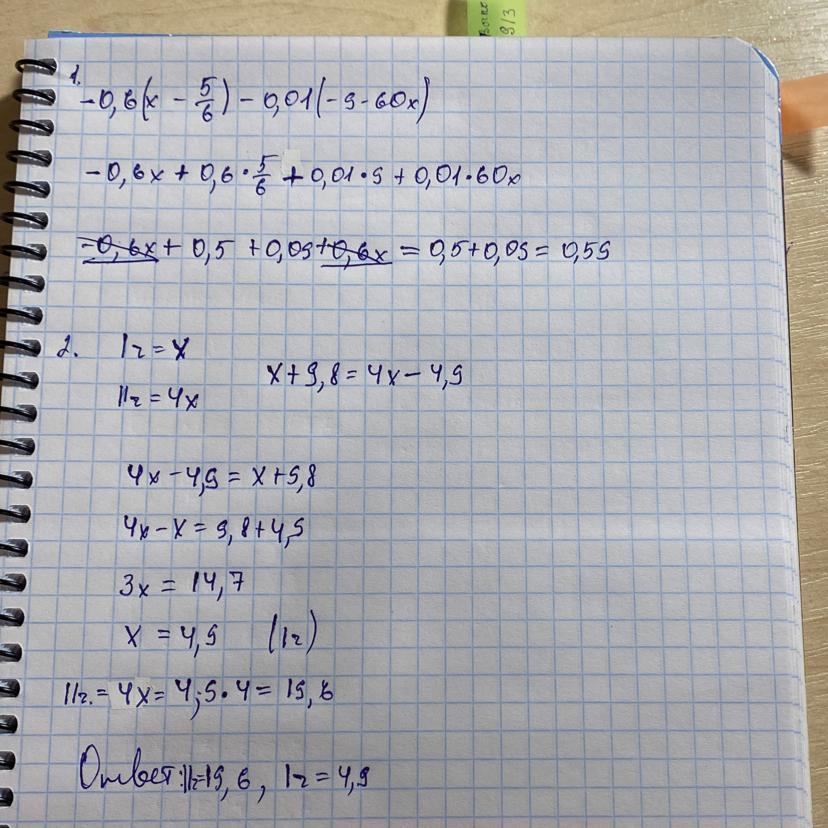 Выпо
9/3
1.
-0,6(x - 5/6) - 0,01(-9-60x)
-0,6x + 0,6·5/6 + 0,01·9 + 0,01·60x
-0,6x + 0,5 + 0,09 + 0,6x = 0,5+0,09 = 0,59
2. Iг = x
x + 9,8 = 4x - 4,9
IIг = 4x
4x - 4,9 = x + 9,8
4x - x = 9,8 + 4,9
3x = 14,7
x = 4,9 (Iг)
IIг. = 4x = 4,9·4 = 19,6
Ответ: IIг=19,6, Iг = 4,9